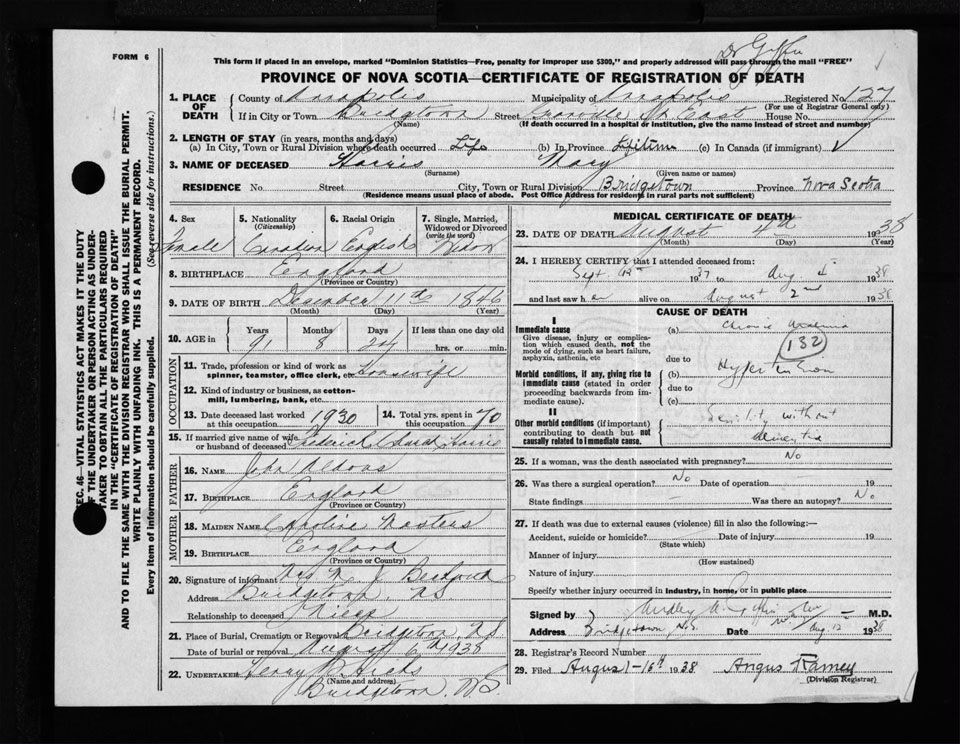 Dr
FORM 6
This form if placed in an envelope, marked "Dominion Statistics—Free, penalty for improper use $300," and properly addressed will pass through the mail "FREE"
PROVINCE OF NOVA SCOTIA—CERTIFICATE OF REGISTRATION OF DEATH
1. PLACE OF DEATH
County of Annapolis Municipality of Annapolis Registered No. 127
(For use of Registrar General only)
If in City or Town Bridgetown Street Granville St East House No.
(Name) (If death occurred in a hospital or institution, give the name instead of street and number)
2. LENGTH OF STAY (in years, months and days)
(a) In City, Town or Rural Division where death occurred Life (b) In Province Lifetime (c) In Canada (if immigrant)
3. NAME OF DECEASED Harris Mary
(Surname) (Given name or names)
RESIDENCE No. Street City, Town or Rural Division Bridgetown Province Nova Scotia
(Residence means usual place of abode. Post Office Address for residents in rural parts not sufficient)
4. Sex
Female
5. Nationality
(Citizenship)
Canadian
6. Racial Origin
English
7. Single, Married, Widowed or Divorced
(write the word)
Widow
8. BIRTHPLACE England
(Province or Country)
9. DATE OF BIRTH December 11th 1846
(Month) (Day) (Year)
10. AGE in
Years Months Days If less than one day old
91 8 24 hrs. or min.
OCCUPATION
11. Trade, profession or kind of work as spinner, teamster, office clerk, etc. Housewife
12. Kind of industry or business, as cotton-mill, lumbering, bank, etc.
13. Date deceased last worked at this occupation 1930
14. Total yrs. spent in this occupation 70
15. If married give name of wife or husband of deceased Harris
FATHER
16. NAME John
17. BIRTHPLACE England
(Province or Country)
MOTHER
18. MAIDEN NAME Masters
19. BIRTHPLACE England
(Province or Country)
20. Signature of informant Mrs
Address Bridgetown, N.S.
Relationship to deceased Niece
21. Place of Burial, Cremation or Removal Bridgetown, N.S.
Date of burial or removal August 6th 1938
22. UNDERTAKER Hicks
(Name and address)
Bridgetown, N.S.
MEDICAL CERTIFICATE OF DEATH
23. DATE OF DEATH August 4th 1938
(Month) (Day) (Year)
24. I HEREBY CERTIFY that I attended deceased from:
Sept. 1937 to Aug 4 1938
and last saw her alive on August 2nd 1938
CAUSE OF DEATH
I
Immediate cause
Give disease, injury or complication which caused death, not the mode of dying, such as heart failure, asphyxia, asthenia, etc
(a) Chronic Uraemia
132
due to
Morbid conditions, if any, giving rise to immediate cause (stated in order proceeding backwards from immediate cause).
(b) Hypertension
due to
(c)
II
Other morbid conditions (if important) contributing to death but not causally related to immediate cause.
Senility without dementia
25. If a woman, was the death associated with pregnancy? No
26. Was there a surgical operation? No Date of operation 19
State findings Was there an autopsy? No
27. If death was due to external causes (violence) fill in also the following:—
Accident, suicide or homicide? Date of injury 19
(State which)
Manner of injury
(How sustained)
Nature of injury
Specify whether injury occurred in industry, in home, or in public place
Signed by M.D.
Address Bridgetown N.S. Date Aug 12 1938
28. Registrar's Record Number
29. Filed August-16th 1938 Angus Ramey
(Division Registrar)
SEC. 46—VITAL STATISTICS ACT MAKES IT THE DUTY
OF THE UNDERTAKER OR PERSON ACTING AS UNDER-
TAKER TO OBTAIN ALL THE PARTICULARS REQUIRED
IN THE "CERTIFICATE OF REGISTRATION OF DEATH"
AND TO FILE THE SAME WITH THE DIVISION REGISTRAR WHO SHALL ISSUE THE BURIAL PERMIT.
WRITE PLAINLY WITH UNFADING INK. THIS IS A PERMANENT RECORD.
Every item of information should be carefully supplied. (See reverse side for instructions.)